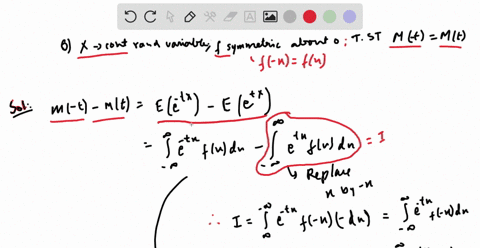 6) X → cont rand variable, f symmetric about 0 ; T. ST M(-t) = M(t)
' f(-x) = f(x)
Sol: m(-t) - M(t) = E(e^{-tX}) - E(e^{tX})
= ∫_{-∞}^{∞} e^{-tx} f(x) dx - ∫_{-∞}^{∞} e^{tx} f(x) dx = I
↳ Replace
x by -x
∴ I = ∫_{∞}^{-∞} e^{-tx} f(-x) (-dx) = ∫_{-∞}^{∞} e^{-tx} f(-x) dx